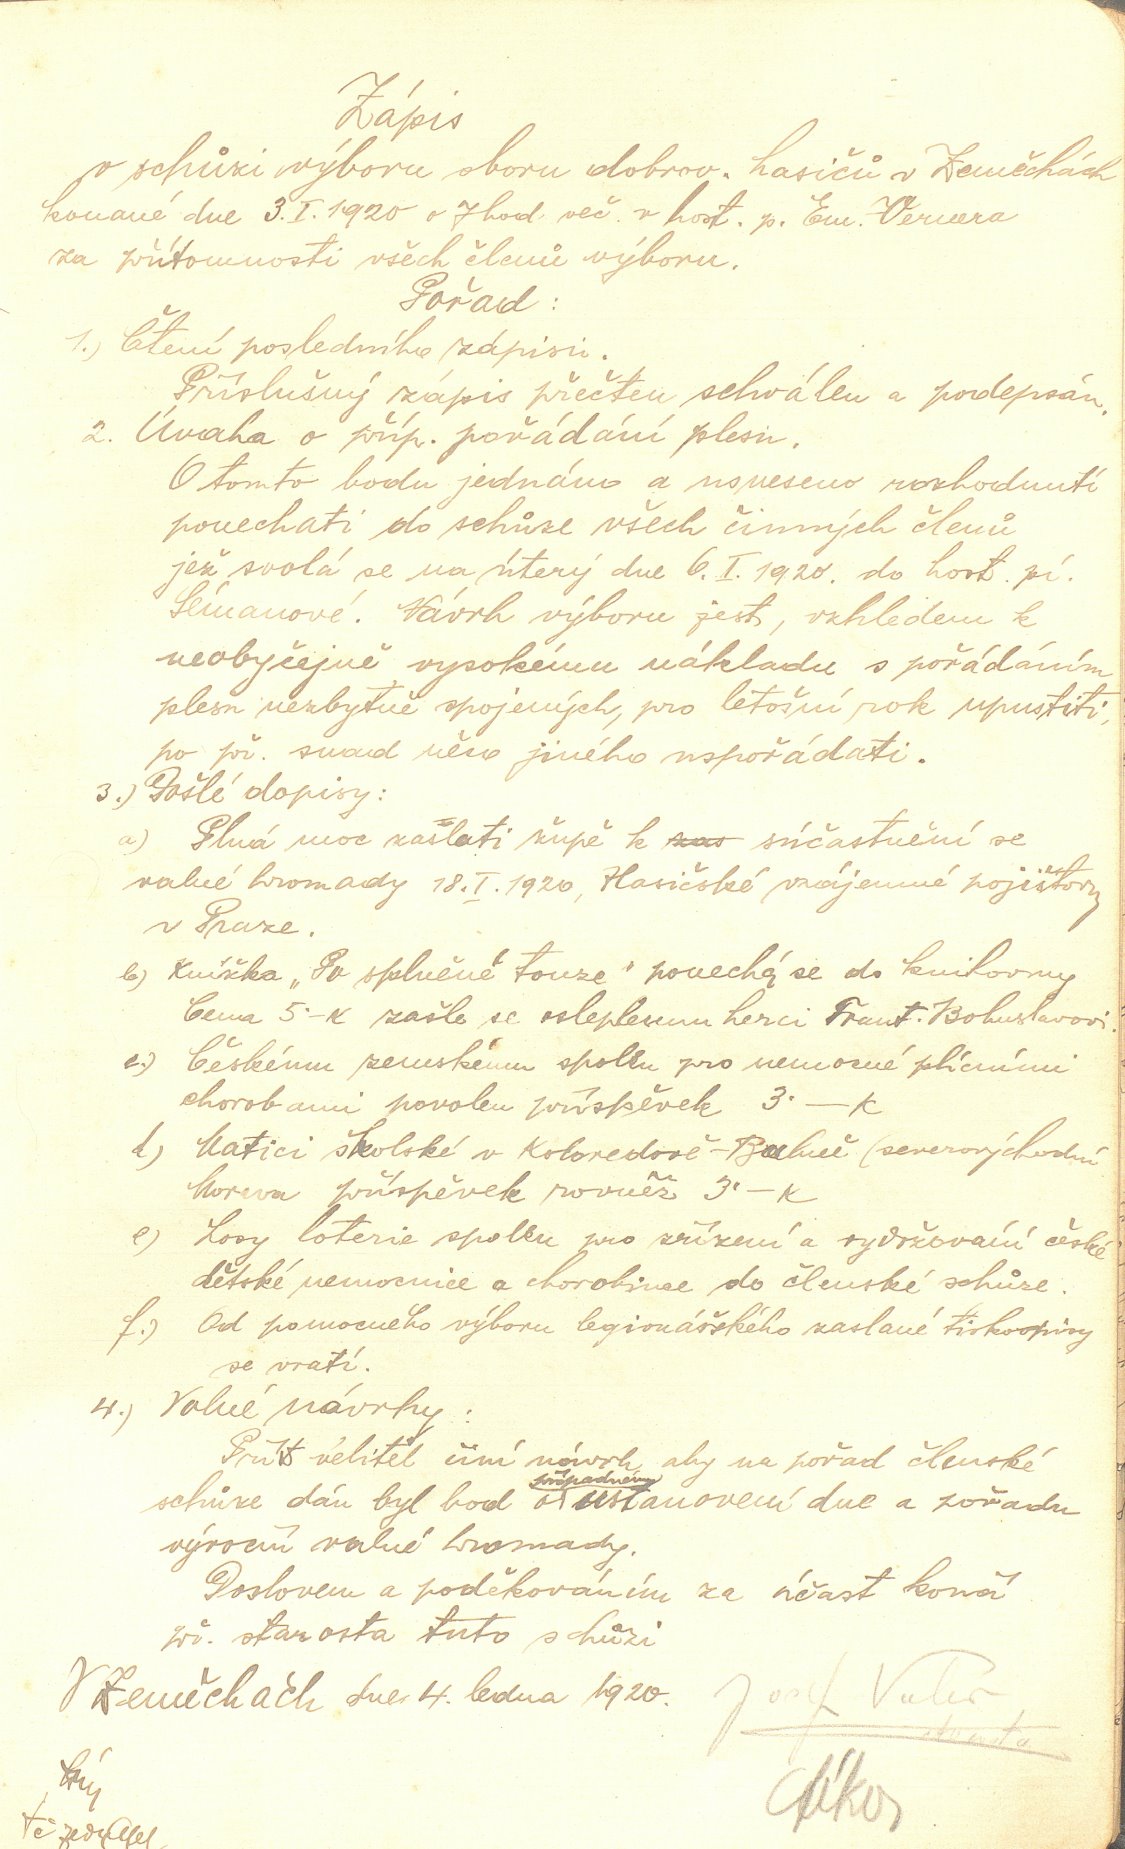 Zápis
o schůzi výboru sboru dobrov. hasičů v Zeměchách
konané dne 3.I.1920 o 7 hod. več. v host. p. Em. Vernera
za přítomnosti všech členů výboru.
Pořad:
1.) Čtení posledního zápisu.
Příslušný zápis přečten schválen a podepsán.
2. Úvaha o příp. pořádání plesu.
O tomto bodu jednáno a usneseno rozhodnutí
ponechati do schůze všech činných členů
jež svolá se na úterý dne 6.I.1920. do host. pí.
Návrh výboru jest, vzhledem k
neobyčejně vysokému nákladu s pořádáním
plesu nezbytně spojených, pro letošní rok upustiti,
po př. snad něco jiného uspořádati.
3.) Došlé dopisy:
a) Plná moc zaslati župě k zas súčastnění se
valné hromady 18.I.1920, Hasičské vzájemné pojišťovny
v Praze.
b) Knížka „Po splněné touze" ponechá se do knihovny
Cena 5·–K zašle se oslepenu herci Frant. Bohuslavovi.
c.) Českému zemskému spolku pro nemocné plícními
chorobami povolen příspěvek 3·–K
d) Matici školské v Koloredově-Bahně (severovýchodní
Morava příspěvek rovněž 3·–K
e) Losy loterie spolku pro zřízení a vydržování české
dětské nemocnice a chorobince do členské schůze.
f.) Od pomocného výboru legionářského zaslané tiskopisy
se vratí.
4.) Volné návrhy:
velitel činí návrh, aby na pořad členské
případném
schůze dán byl bod o ustanovení dne a pořadu
výroční valné hromady.
Doslovem a poděkováním za účast končí
př. starosta tuto schůzi
V Zeměchách dne 4. ledna 1920.
Josef
starosta